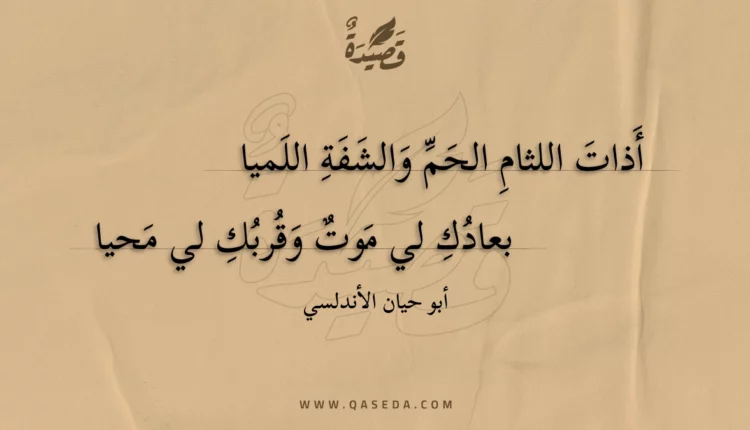 قَصِيْدَةٌ
أَذاتَ اللثامِ الحَمِّ وَالشَفَةِ اللَميا
بعادُكِ لي مَوتٌ وَقُربُكِ لي مَحيا
أبو حيان الأندلسي
WWW.QASEDA.COM